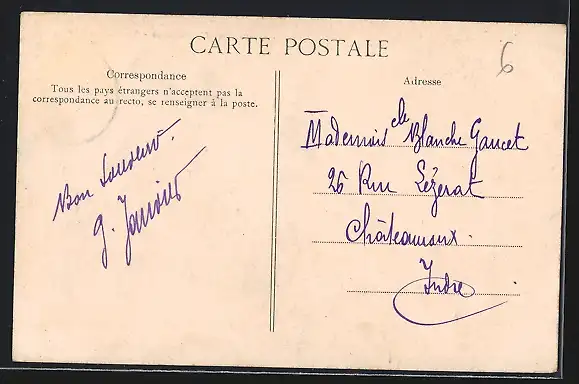 CARTE POSTALE
6
Correspondance
Tous les pays étrangers n'acceptent pas la
correspondance au recto, se renseigner à la poste.
Bon Souvenir.
G.
Adresse
Mademoiselle Blanche Gaucet
26 Rue Lézerat
Châteauroux.
Indre